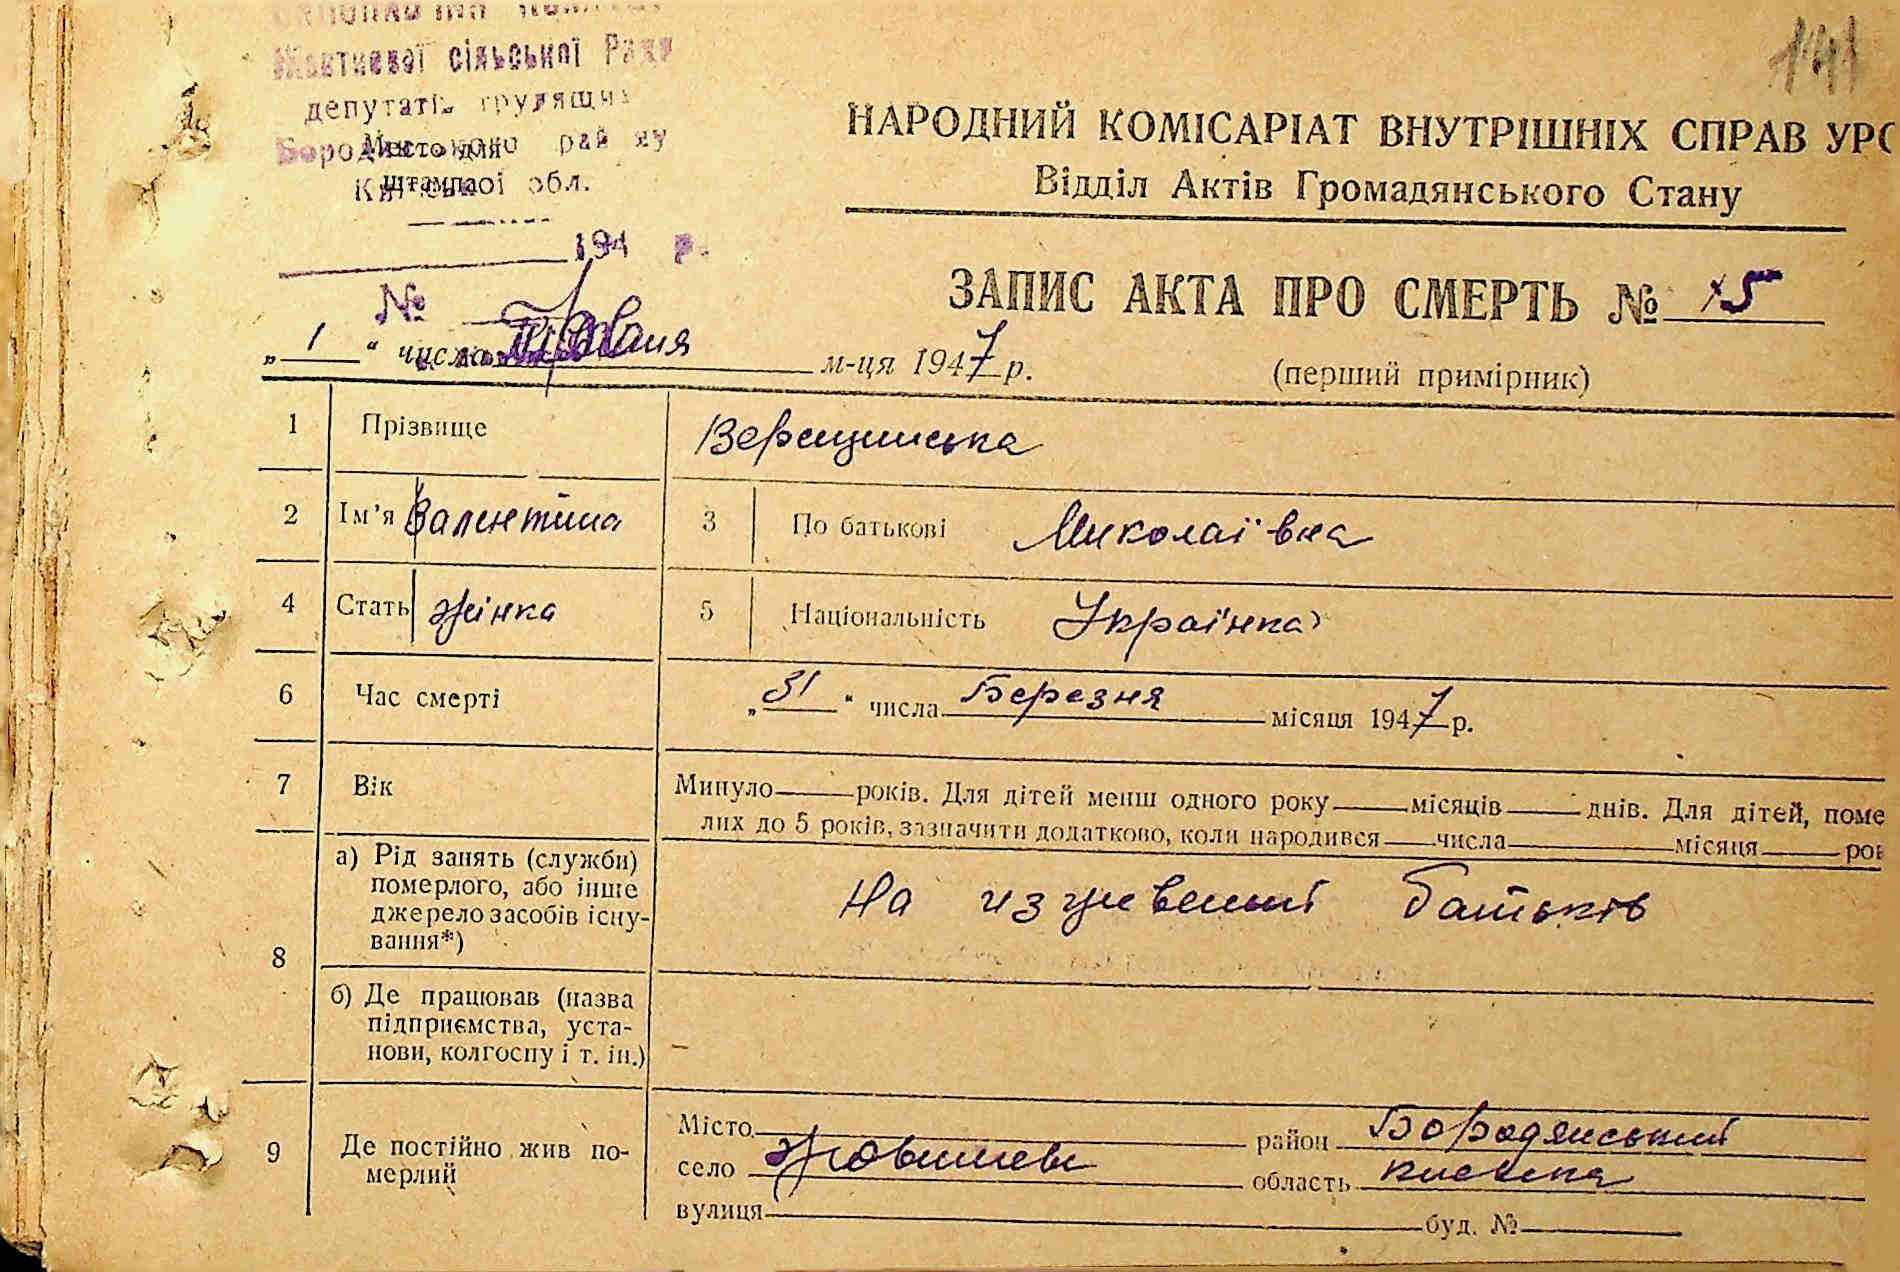 141
Жовтневої сільської Ради
депутатів трудящих
Бородянського району
Місто для
штампа
Київської обл.
194 р.
№
НАРОДНИЙ КОМІСАРІАТ ВНУТРІШНІХ СПРАВ УРС
Відділ Актів Громадянського Стану
ЗАПИС АКТА ПРО СМЕРТЬ № 15
„ 1 “ числа м-ця 1947 р.
(перший примірник)
1 Прізвище Верещинська
2 Ім'я Валентина 3 По батькові Миколаївна
4 Стать жінка 5 Національність Українка
6 Час смерті „ 31 “ числа Березня місяця 1947 р.
7 Вік Минуло років. Для дітей менш одного року місяців днів. Для дітей, поме
лих до 5 років, зазначити додатково, коли народився числа місяця рок
8 а) Рід занять (служби)
померлого, або інше
джерело засобів існу-
вання*)
На іздивенії батьків
б) Де працював (назва
підприємства, уста-
нови, колгоспу і т. ін.)
–
9 Де постійно жив по-
мерлий
Місто район Бородянський
село область Київська
вулиця буд. №